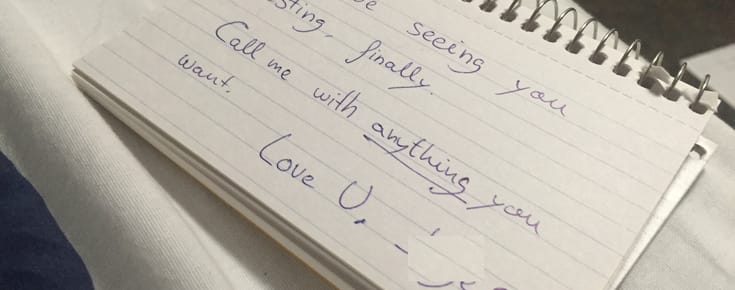 seeing you
sting, finally.
Call me with anything you
want.
Love U,